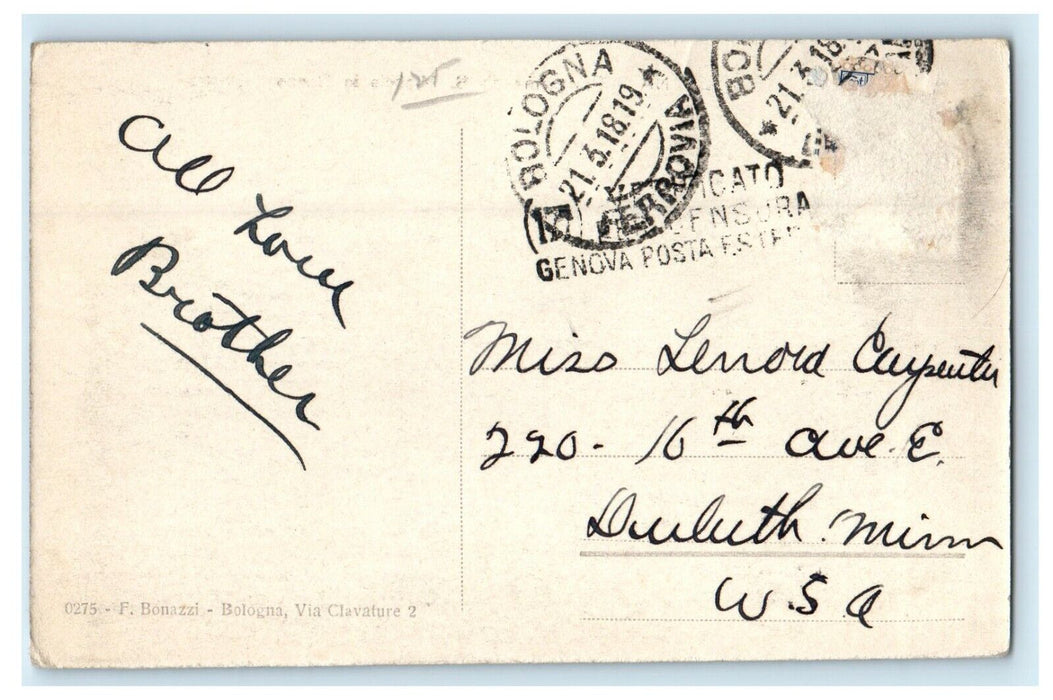 All Love
Brother
BOLOGNA
21.3.18 19
FERROVIA
BO
21.3.18
CENSURA
GENOVA POSTA
Miss Lenord Carpenter
220 - 16th Ave. E.
Duluth. Minn
U.S.A
0275 - F. Bonazzi - Bologna, Via Clavature 2